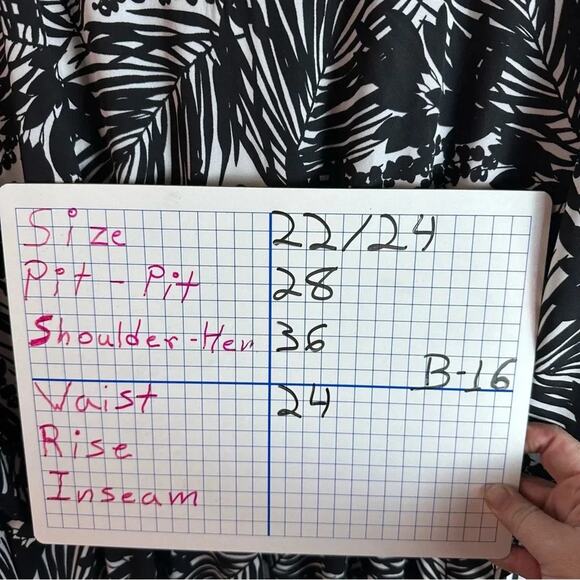 Size 22/24
Pit - Pit 28
Shoulder-Hem 36
B-16
Waist 24
Rise
Inseam